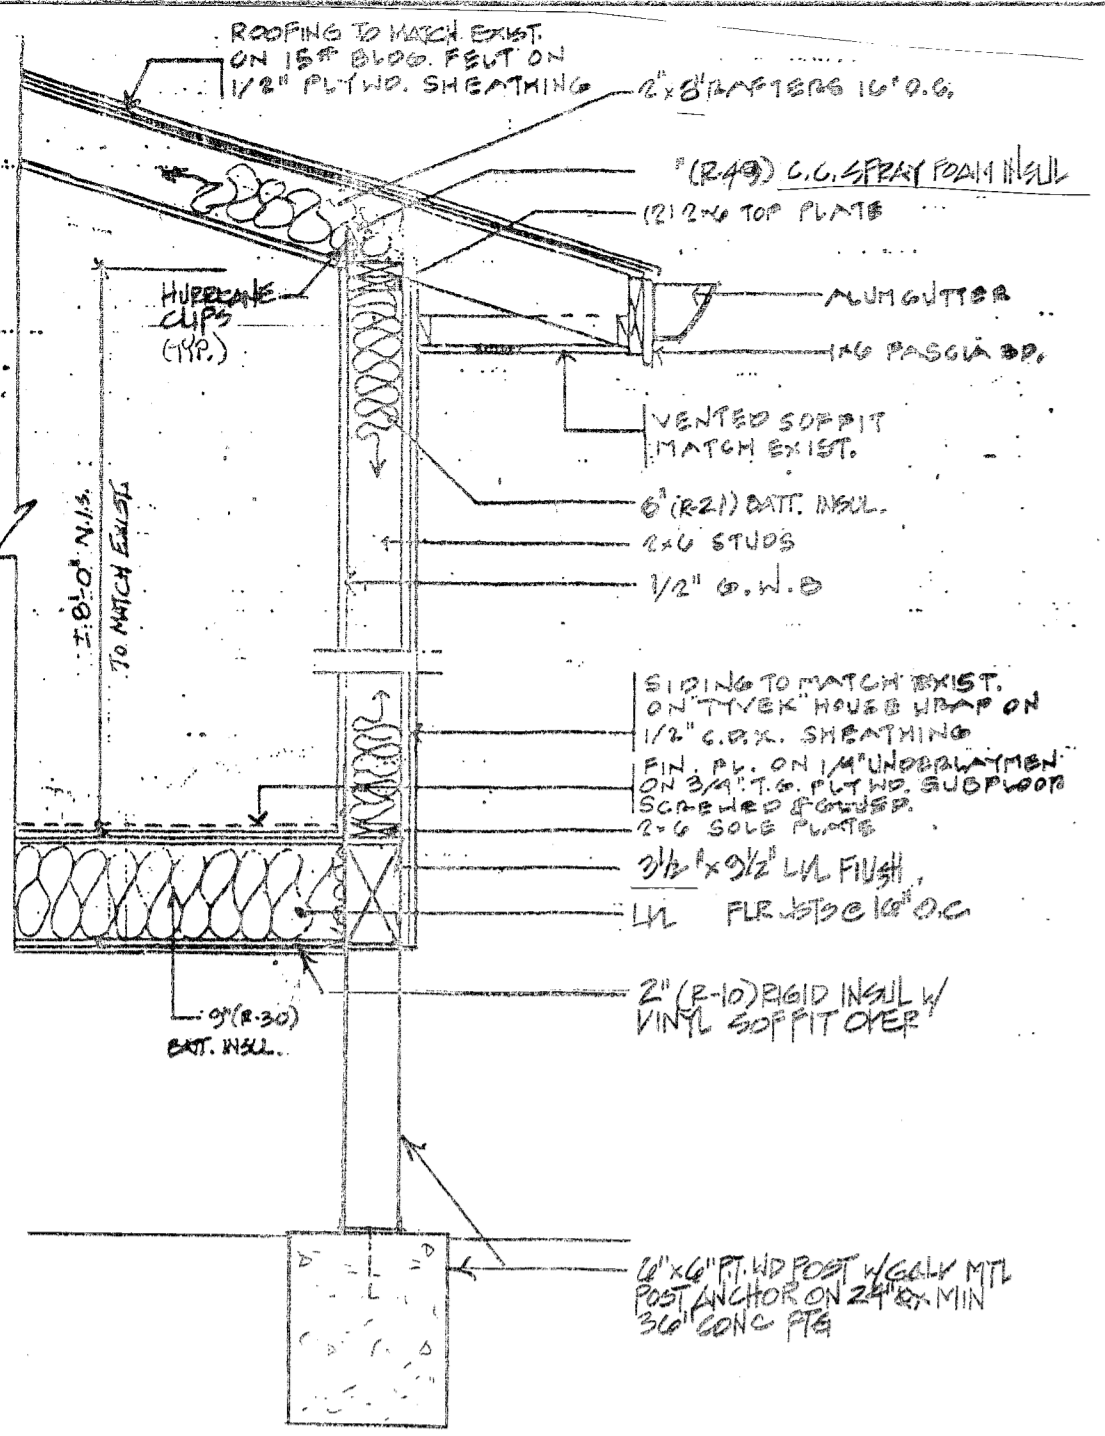 ROOFING TO MATCH EXIST.
ON 15# BLDG. FELT ON
1/2" PLYWD. SHEATHING
2"x8" RAFTERS 16" O.C.
"(R-49) C.C. SPRAY FOAM INSUL
(2) 2x6 TOP PLATE
HURRICANE
CLIPS
(TYP.)
ALUM GUTTER
1x6 FASCIA BD.
VENTED SOFFIT
MATCH EXIST.
6" (R-21) BATT. INSUL.
2x6 STUDS
1/2" G.W.B
8'-0" N.T.S.
TO MATCH EXIST.
SIDING TO MATCH EXIST.
ON "TYVEK" HOUSE WRAP ON
1/2" C.D.X. SHEATHING
FIN. FL. ON 1/4" UNDERLAYMEN
ON 3/4" T.G. PLYWD. SUBFLOOR
SCREWED & GLUED.
2x6 SOLE PLATE
3 1/2" x 9 1/2" LVL FLUSH
LVL FLR JSTS @ 16" O.C
2" (R-10) RIGID INSUL W/
VINYL SOFFIT OVER
9" (R-30)
BATT. INSUL.
6"x6" P.T. WD POST W/ GALV MTL
POST ANCHOR ON 24" MIN
36" CONC FTG